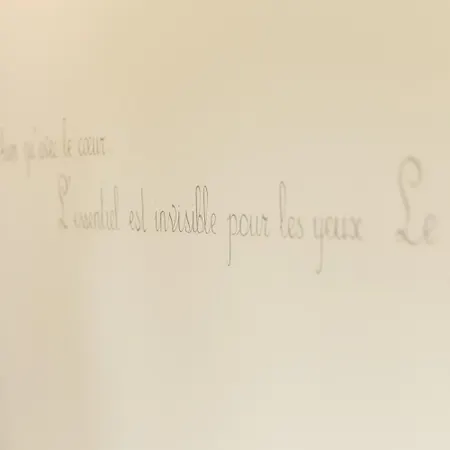 qu'avec le cœur
L'essentiel est invisible pour les yeux
Le